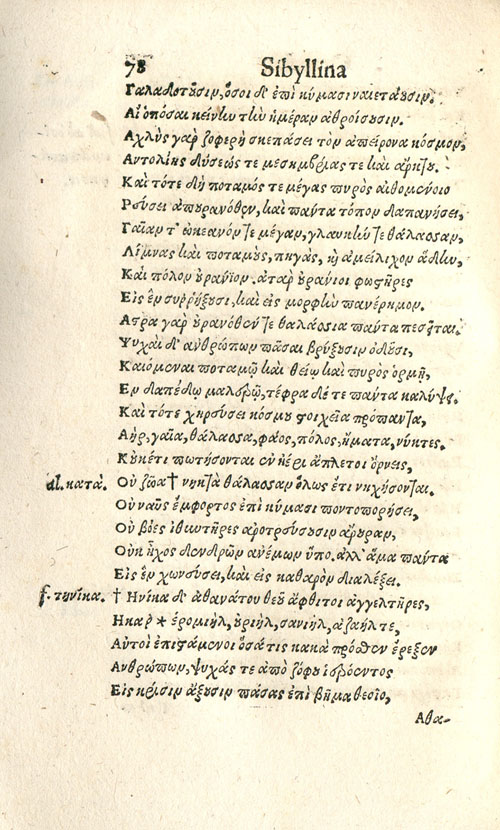 78 Sibyllina
Γαλαδοτοῦσιν, ὅσοι δ' ἐπὶ κύμασι ναιετάουσιν.
Αἲ ὁπόσαι κείνην τὴν ἡμέραν ἀθροίσουσιν.
Αχλὺς γὰρ ζοφερὴ σκεπάσει τὸν ἀπείρονα κόσμον,
Αντολίης δύσεώς τε μεσημβρίας τε καὶ ἄρκτου.
Καὶ τότε δὴ ποταμός τε μέγας πυρὸς αἰθομένοιο
Ρεύσει ἀπ' οὐρανόθεν, καὶ πάντα τόπον δαπανήσει,
Γαῖαν τ' ὠκεανόν τε μέγαν, γλαυκήν τε θάλασσαν,
Λίμνας καὶ ποταμοὺς, πηγὰς, καὶ ἀμείλιχον ἅδην,
Καὶ πόλον οὐράνιον. ἀτὰρ οὐράνιοι φωστῆρες
Εἰς ἓν συρρήξουσι, καὶ εἰς μορφὴν πανέρημον.
Αστρα γὰρ οὐρανόθεν τε θαλάσσια πάντα πεσεῖται.
Ψυχαὶ δ' ἀνθρώπων πᾶσαι βρύξουσιν ὀδοῦσι,
Καιόμεναι ποταμῷ καὶ θείῳ καὶ πυρὸς ὁρμῇ,
Εν δαπέδῳ μαλερῷ, τέφρα δέ τε πάντα καλύψει.
Καὶ τότε χηρεύσει κόσμου στοιχεῖα πρόπαντα,
Αὴρ, γαῖα, θάλασσα, φάος, πόλος, ἤματα, νύκτες.
Κοὐκέτι πωτήσονται ἐν ἠέρι ἄπλετοι ὄρνεις,
al. κατὰ. Οὐ ζῶα † νηκτὰ θάλασσαν ὅλως ἔτι νηχήσονται.
Οὐ ναῦς ἔμφορτος ἐπὶ κύμασι ποντοπορήσει,
Οὐ βόες ἰθυντῆρες ἀροτρεύσουσιν ἄρουραν,
Οὐκ ἦχος δένδρων ἀνέμων ὕπο. ἀλλ' ἅμα πάντα
Εἰς ἓν χωνεύσει, καὶ εἰς καθαρὸν διαλέξει.
f. τηνίκα. † Ηνίκα δ' ἀθανάτου θεοῦ ἄφθιτοι ἀγγελτῆρες,
Ηκαρ * ἐρομιὴλ, οὐριὴλ, σανιὴλ, ἀζαήλ τε,
Αὐτοὶ ἐπιστάμενοι ὅσά τις κακὰ πρόσθεν ἔρεξεν
Ανθρώπων, ψυχάς τε ἀπὸ ζόφου ἠερόεντος
Εἰς κρίσιν ἄξουσιν πάσας ἐπὶ βῆμα θεοῖο,
Αθα-